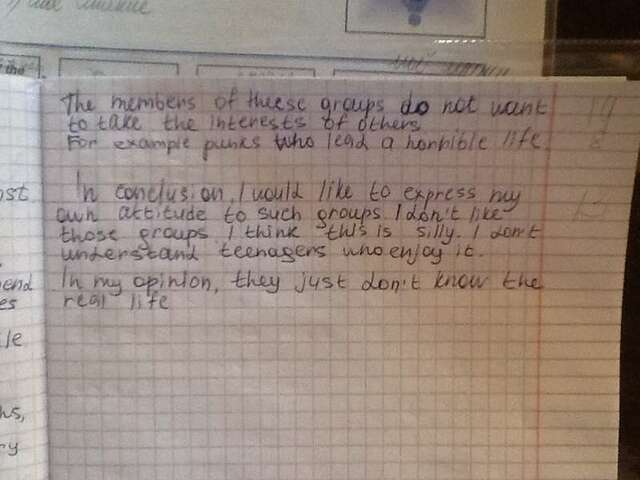 The members of theese groups do not want
to take the interests of others
For example punks who lead a horrible life.
In conclusion, I would like to express my
own attitude to such groups. I don't like
those groups. I think this is silly. I don't
understand teenagers who enjoy it.
In my opinion, they just don't know the
real life
ost
end
es
le
ns,
ry